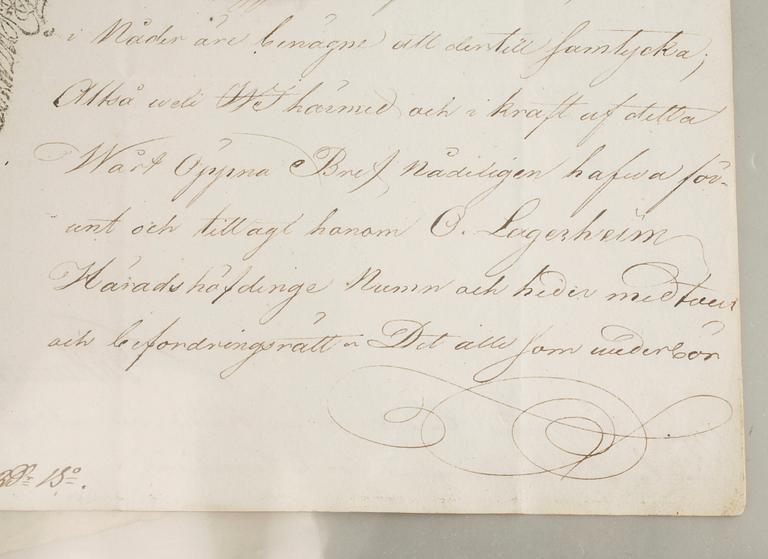 i Nåder äre benägne att dertill samtycka;
Altså wele WJ härmed och i kraft af detta
Wårt Öppna Bref Nådeligen hafwa för-
unt och tillagt honom O. Lagerheim
Häradshöfdinge Namn och heder med
och befordringsrätt Det alle som wederbör